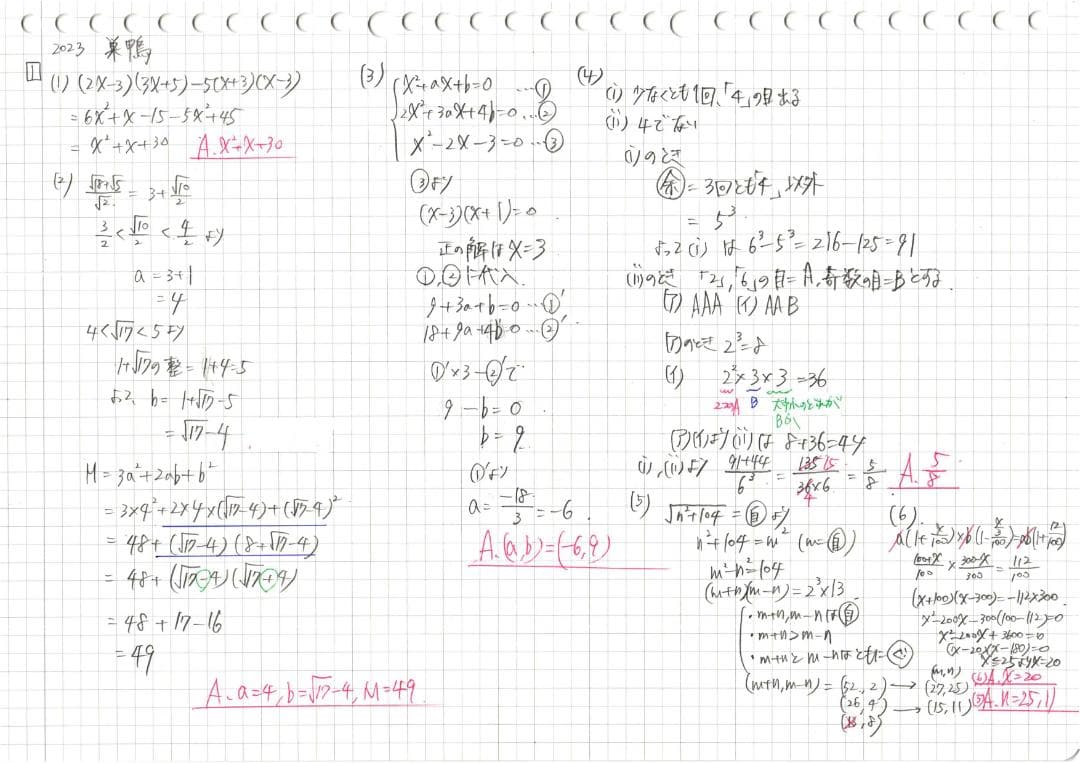 2023 巣鴨
1
(1) (2x-3)(3x+5)-5(x+3)(x-3)
= 6x²+x-15-5x²+45
= x²+x+30 A. x²+x+30
(2) (√18+√5)/√2 = 3+√10/2
3/2 < √10/2 < 4/2 より
a = 3+1
= 4
4<√17<5より
1+√17の整=1+4=5
よって、b= 1+√17-5
= √17-4
M = 3a²+2ab+b²
= 3×4²+2×4×(√17-4)+(√17-4)²
= 48+(√17-4)(8+√17-4)
= 48+(√17-4)(√17+4)
= 48+17-16
= 49
A. a=4, b=√17-4, M=49
(3) x²+ax+b=0 …①
2x²+3ax+4b=0 …②
x²-2x-3=0 …③
③より
(x-3)(x+1)=0
正の解はx=3
①,②に代入
9+3a+b=0 …①'
18+9a+4b=0 …②'
①'×3-②'で
9-b=0
b=9
①'より
a= -18/3 = -6.
A.(a,b)=(-6,9)
(4)
(i) 少なくとも1回、「4」の目出る
(ii) 4でない
(i)のとき
余=3回とも「4」以外
= 5³
よって(i)は 6³-5³=216-125=91
(ii)のとき 「2」,「6」の目=A,奇数の目=Bとする.
(ア) AAA (イ) AAB
(ア)のとき 2³=8
(イ) 2²×3×3=36
2コのA B 大中小のどれが
Bか
(ア)(イ)より(ii)は 8+36=44
(i),(ii)より (91+44)/6³ = 135 15/(36×6) 4 = 5/8 A. 5/8
(5) √(n²+104)=自より
n²+104=m² (m=自)
m²-n²=104
(m+n)(m-n)=2³×13
・m+n,m-nは自
・m+n>m-n
・m+nとm-nはともに
(m+n,m-n)=(52,2)→(27,25)
(m,n)
(26,4)→(15,11)
(13,8)
(6).
a(1+x/100)×b(1-(x/3)/100)=ab(1+12/100)
(100+x)/100×(300-x)/300=112/100
(x+100)(x-300)=-112×300
x²-200x-300(100-112)=0
x²-200x+3600=0
(x-20)(x-180)=0
x≦25よりx=20
(6)A. x=20
(5)A. n=25,11